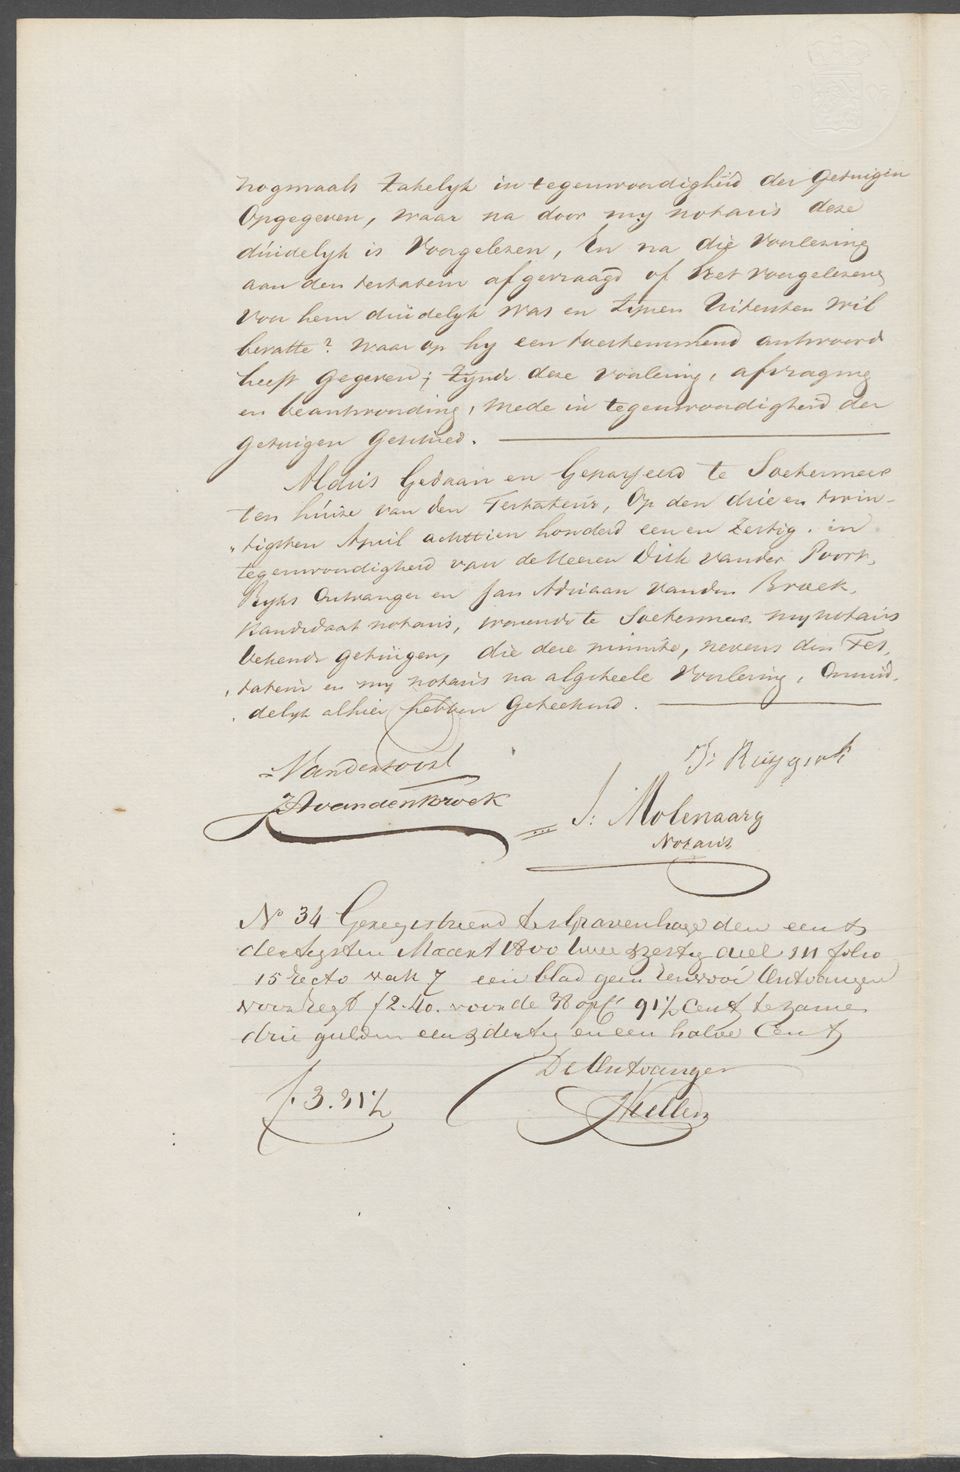 nogmaals Zakelyk in tegenwoordigheid der Getuigen
Opgegeven, waar na door my notaris deze
duidelyk is Voorgelezen, En na die Voorlezing
aan den testateur afgevraagd of het voorgelezene
Voor hem duidelyk was en zynen Uitersten wil
bevatte? waar op hy een toestemmend antwoord
heeft gegeven; Zynde deze voorlezing, afvraging
en beantwoording, mede in tegenwoordigheid der
getuigen Geschied.
Aldus Gedaan en Gepasseerd te Soetermeer
ten huize van den Testateur, Op den drie en twin-
tigsten April achttien honderd een en Zestig. in
tegenwoordigheid van de Heeren Dirk vander Poort,
Ryks Ontvanger en Jan Adriaan vanden Broek,
Kandidaat notaris, wonende te Soetermeer. my notaris
bekende getuigen, die deze minute, nevens den Tes,
tateur en my notaris na algeheele Voorlezing, Onmid,
delyk alhier hebben Geteekend.
Vanderpoort
J: Ruygrok
JAvandenBroek
J: Molenaar
Notaris
No 34 Geregistreerd te sGravenhage den een &
dertigsten Maart 1800 twee & zestig deel 111 folio
15 recto vak 7 een blad geen renvooi Ontvangen
voor regt f 2.40. voor de 38 opc 91½ Cent te zamen
drie gulden een & dertig en een halve Cent
De Ontvanger
f. 3.31½